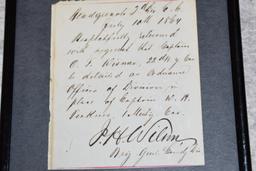 Headquarters 3d Div C.C.
July 10th 1864
Respectfully returned
with request that Captain
O. F. Wisner, 22d N.Y. Cav
be detailed as Ordnance
Officer of Division in
place of Captain W. R.
Perkins, 1st Cav.
J. H. Wilson
Brig Genl Comdg Div